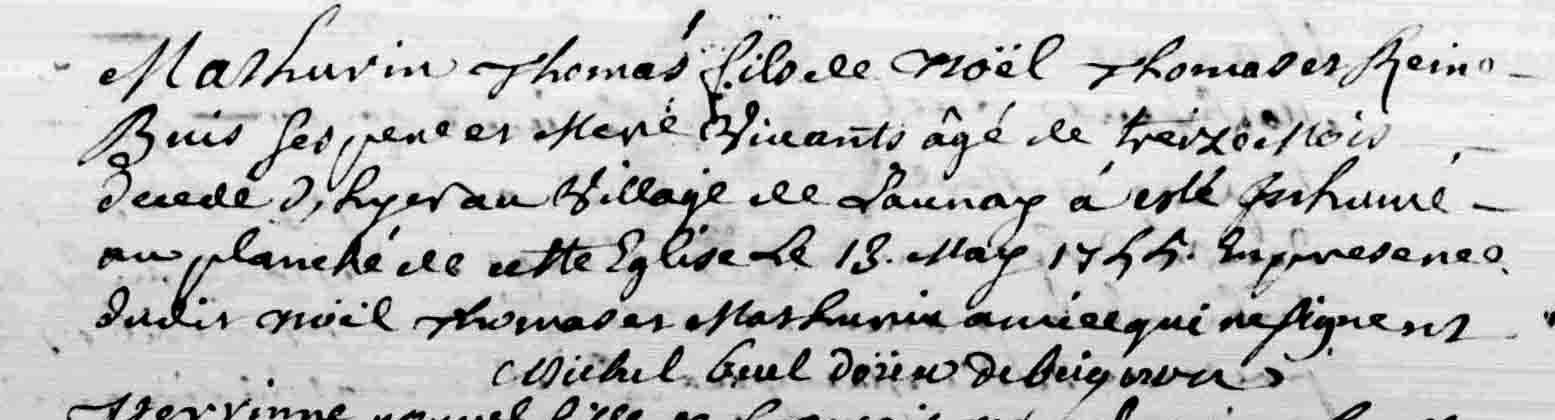 Mathurin Thomas fils de Noël Thomas et Reine
Buis ses pere et Mere Vivants âgé de treize Mois
decede d'hyer au Village de Launay á esté Inhumé
au planché de cette Eglise Le 13. May 1755. En presence
dudit Noël Thomas et Mathurin qui ne signent
Michel doïen de